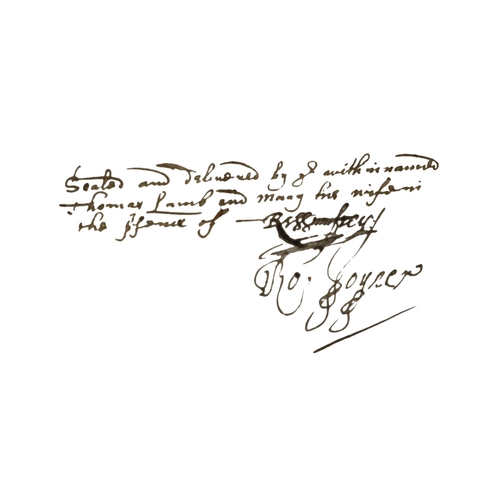 Sealed and delivered by ye within named
Thomas Lamb and Mary his wife in
the psence of
Ro: Joyner